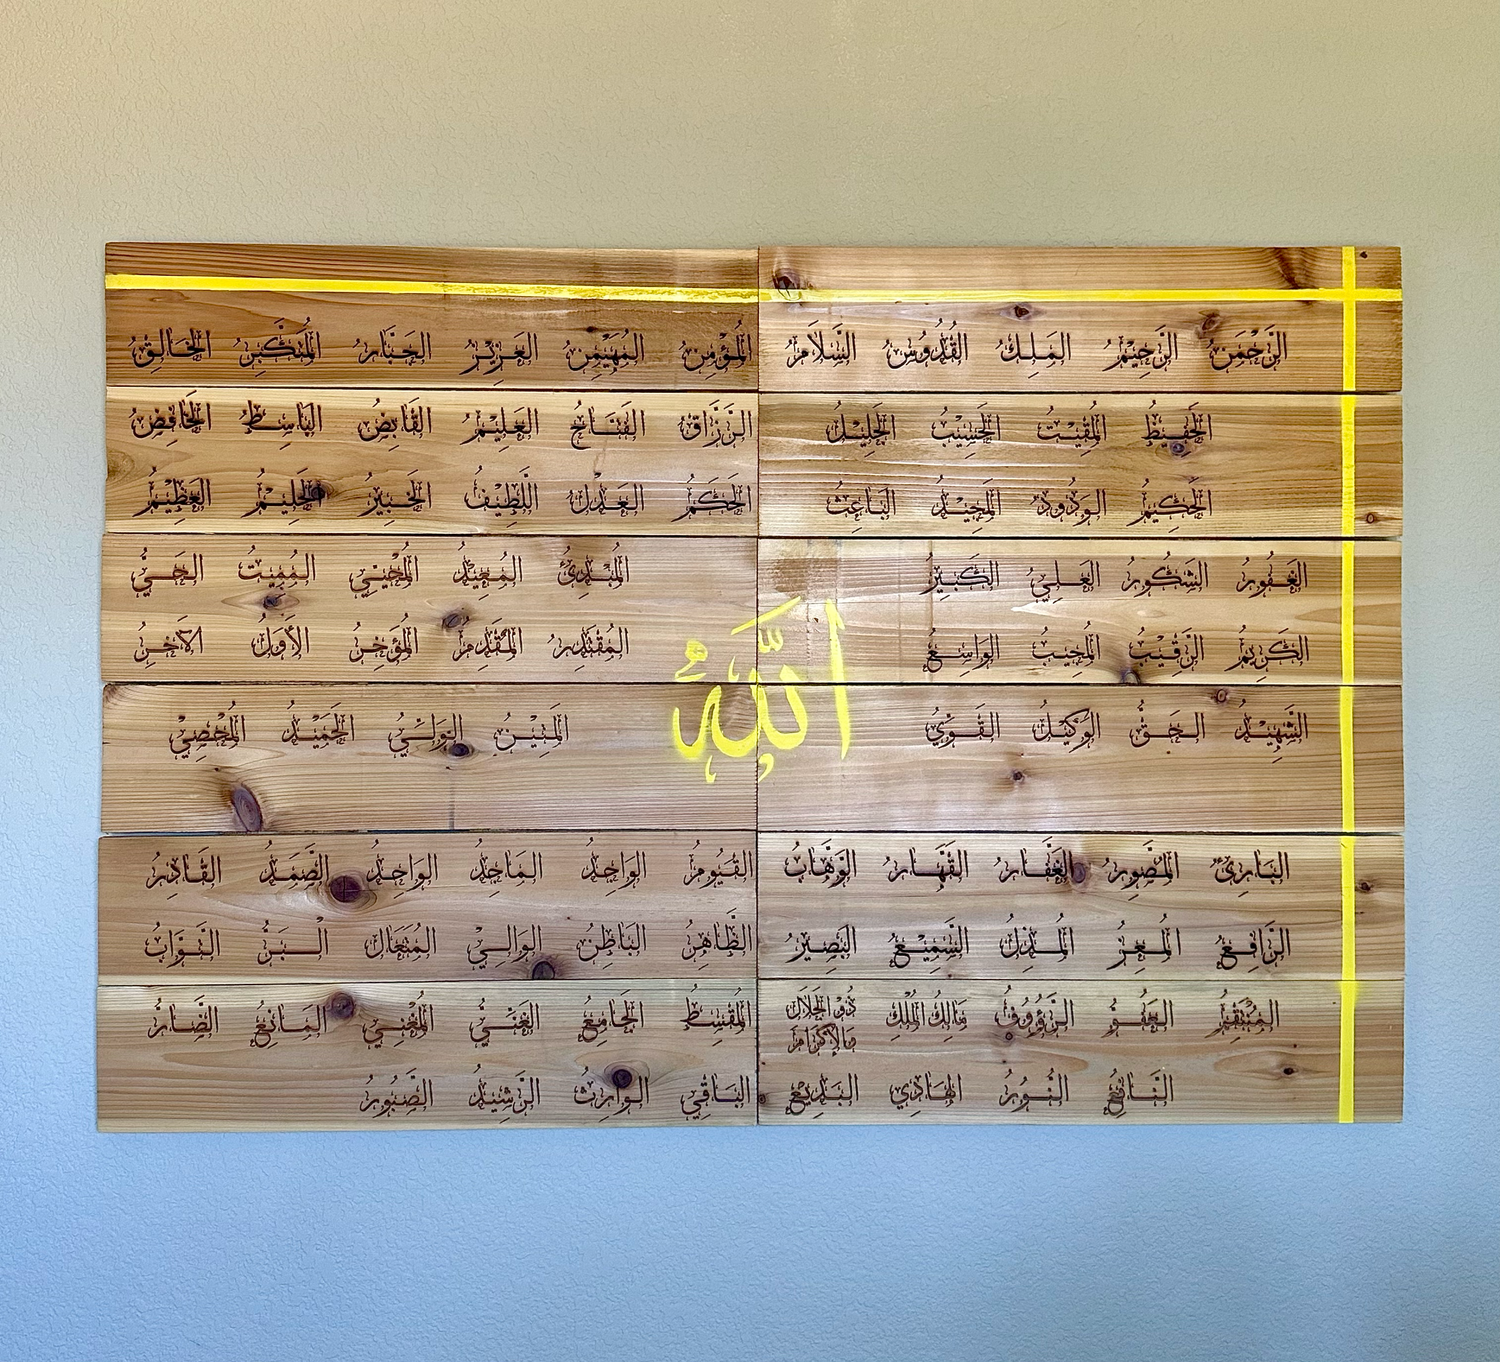 الرَّحْمَنُ الرَّحِيْمُ المَلِكُ القُدُّوسُ السَّلَامُ المُؤْمِنُ المُهَيْمِنُ العَزِيْزُ الجَبَّارُ المُتَكَبِّرُ الخَالِقُ
الحَفِيْظُ المُقِيْتُ الحَسِيْبُ الجَلِيْلُ الرَّزَّاقُ الفَتَّاحُ العَلِيْمُ القَابِضُ البَاسِطُ الخَافِضُ
الحَكِيْمُ الوَدُودُ المَجِيْدُ البَاعِثُ الحَكَمُ العَدْلُ اللَّطِيْفُ الخَبِيْرُ الحَلِيْمُ العَظِيْمُ
الغَفُورُ الشَّكُورُ العَلِيُّ الكَبِيْرُ المُبْدِئُ المُعِيْدُ المُحْيِي المُمِيْتُ الحَيُّ
الكَرِيْمُ الرَّقِيْبُ المُجِيْبُ الوَاسِعُ المُقْتَدِرُ المُقَدِّمُ المُؤَخِّرُ الأَوَّلُ الآخِرُ
اللهُ
الشَّهِيْدُ الحَقُّ الوَكِيْلُ القَوِيُّ المَتِيْنُ الوَلِيُّ الحَمِيْدُ المُحْصِي
البَارِئُ المُصَوِّرُ الغَفَّارُ القَهَّارُ الوَهَّابُ القَيُّومُ الوَاجِدُ المَاجِدُ الوَاحِدُ الصَّمَدُ القَادِرُ
الرَّافِعُ المُعِزُّ المُذِلُّ السَّمِيْعُ البَصِيْرُ الظَّاهِرُ البَاطِنُ الوَالِي المُتَعَالِ البَرُّ التَّوَّابُ
المُنْتَقِمُ العَفُوُّ الرَّؤُوفُ مَالِكُ المُلْكِ ذُو الجَلَالِ وَالإِكْرَامِ المُقْسِطُ الجَامِعُ الغَنِيُّ المُغْنِي المَانِعُ الضَّارُّ
النَّافِعُ النُّورُ الهَادِي البَدِيْعُ البَاقِي الوَارِثُ الرَّشِيْدُ الصَّبُورُ